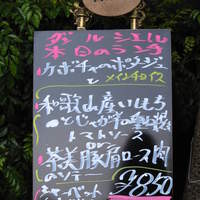 ダルシェル
本日のランチ
ケボチャのポタージュ
とメインチョイス
和歌山産いしもち
とじゃがの重ね焼
トマトソース
or
茶美豚肩ロース肉
のソテー
シャーベット
¥850